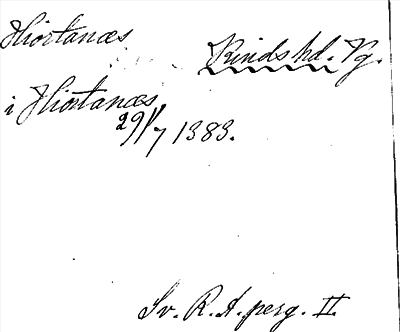 Hiortanæs
Kinds hd. Vg.
i Hiortanæs,
29/7 1383.
Sv. R. A. perg. II.